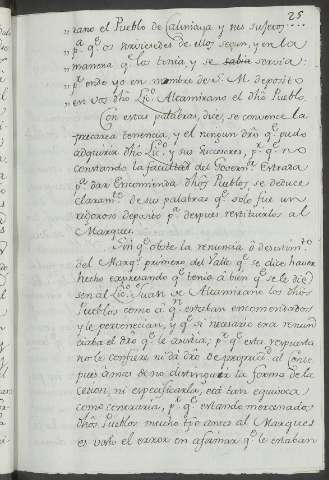 25
„ rano el Pueblo de Calimaya y sus sujetos
„ p.ª q.e os sirviesedes de ellos segun, y en la
„ manera q.e los tenia y se sabia servia:
„ p.r ende yo en nombre de S. M. deposito
„ en vos dho Lic.do Altamirano el dho Pueblo
Con estas palabras, dice, se convence la
precarea tenencia, y el ningun dro q.e pudo
adquirir dho Lic.do y sus succesores, p.r q.e no
constando la facultad del Govern.or Estrada
p.ª dar Encomienda dhos Pueblos se deduce
claram.te de sus palabras q.e solo fue un
rigoroso deposito p.ª despues restituirlos al
Marques.
Sin q.e obste la renuncia o desestim.to
del Marq.s primero del Valle q.e se dice haver
hecho expresando q.e tenia â bien q.e se le die
sen al Lic.do Juan de Altamirano los dhos
Pueblos como â q.n estaban encomendados
y le pertenecian, y q.e si necesario era renun
ciaba el dro q.e le asistia; p.r q.e esta respuesta
no le confiere ni dâ dro de propried.d al Conde
pues âmas de no distinguir la forma de la
cesion, ni especificarla, está tan equivoca
como contraria, p.r q.e estando mercenados
dhos Pueblos mucho tpo antes al Marques
es visto el error en afirmar q.e le estaban